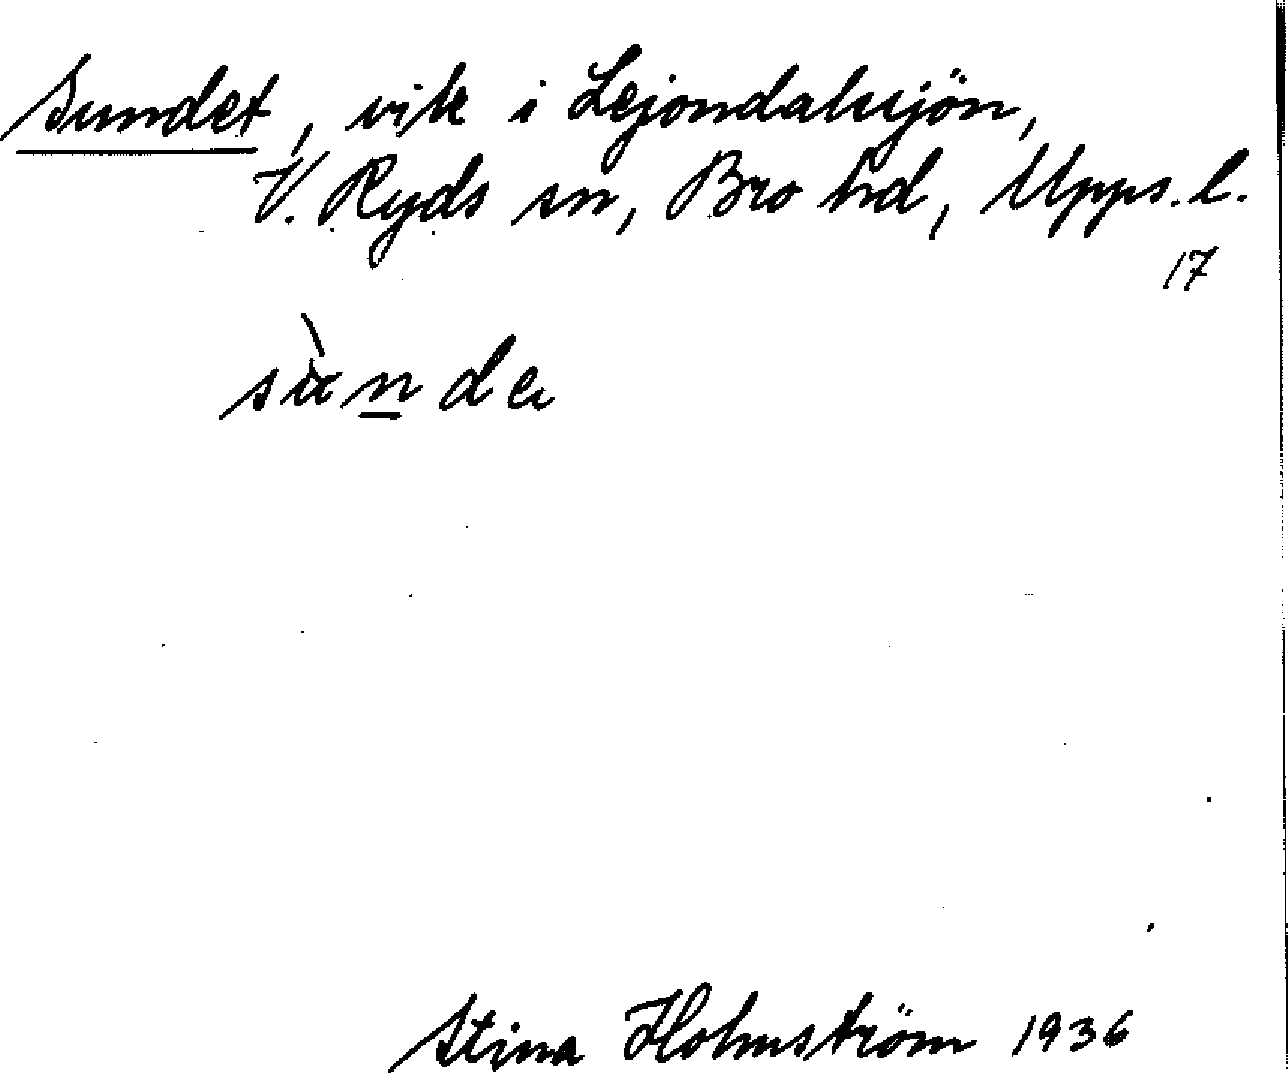 Sundet, vik i Lejondalssjön,
V. Ryds sn, Bro hd, Upps. l.
17
Stina Holmström 1936